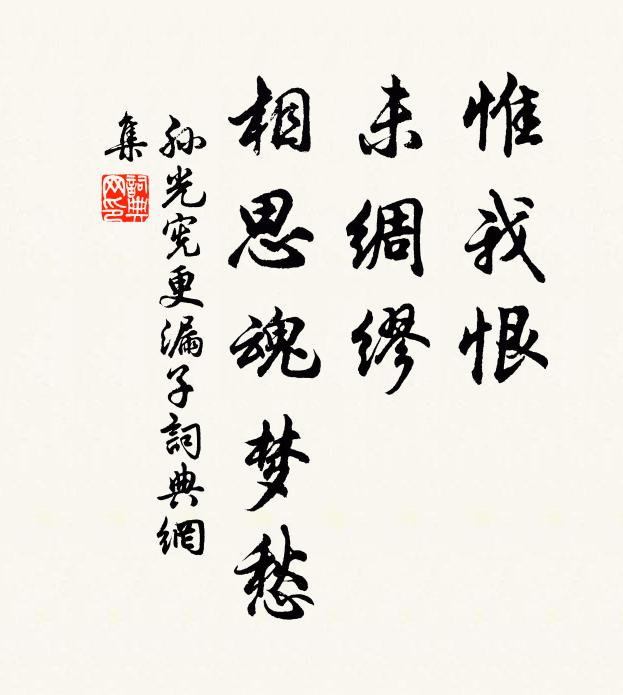 惟我恨
未綢繆
相思魂梦愁
孙光宪更漏子詞典網
集
詞典
网印